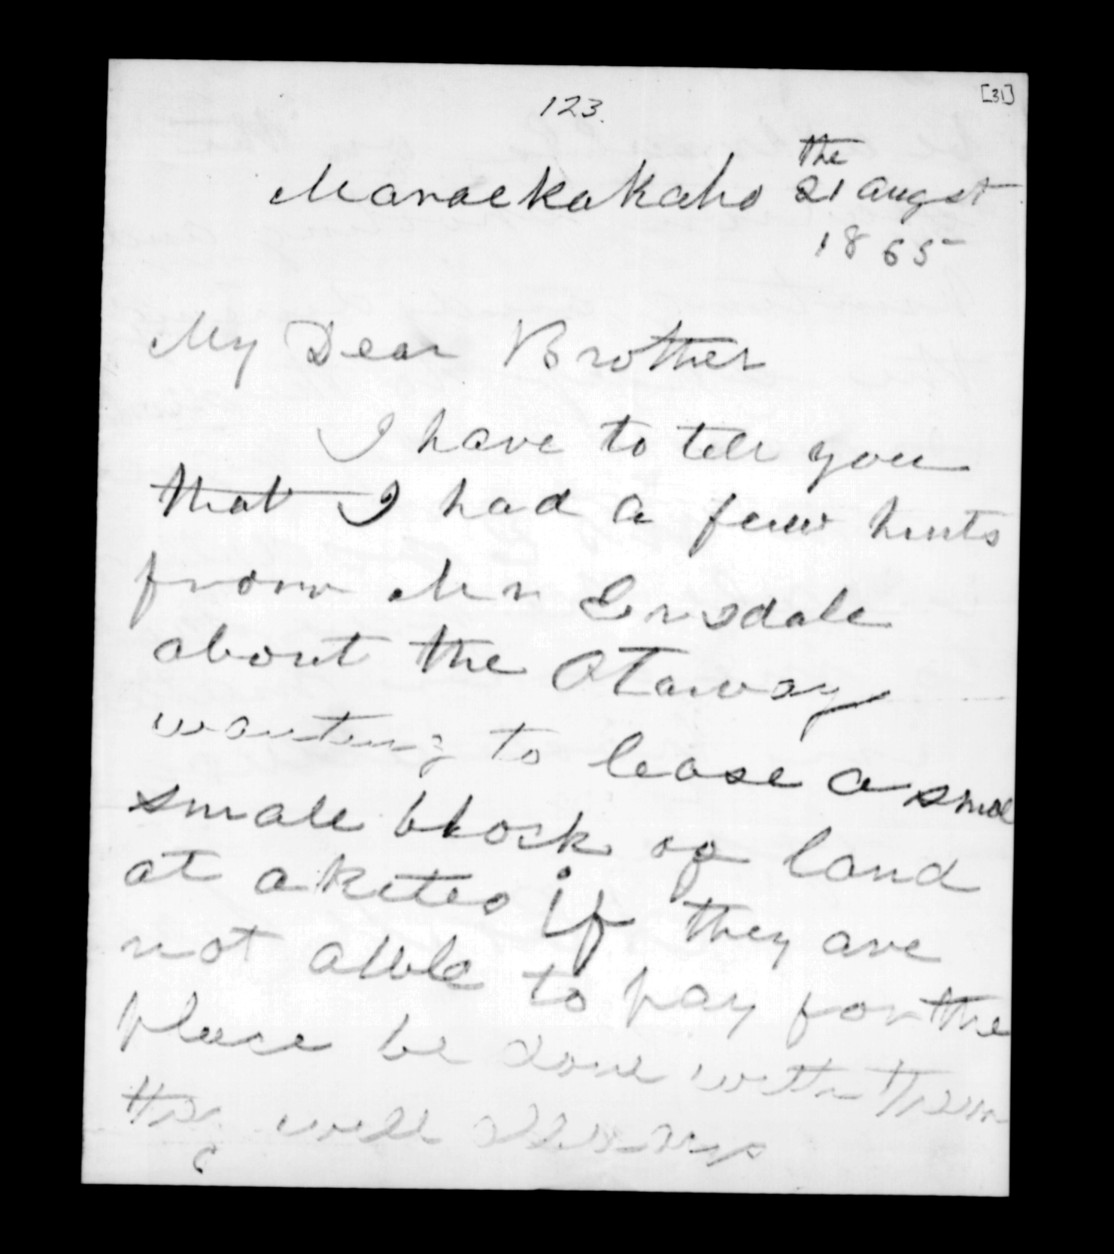 [31]
123.
Maraekakaho 21 the augst
1865
My Dear Brother
I have to tell you
that I had a few hints
from Mr Ensdale
about the Otaway
wanting to lease a smal
small block of land
at akiteo if they are
not alble to pay for the
place be done with them
they will allways